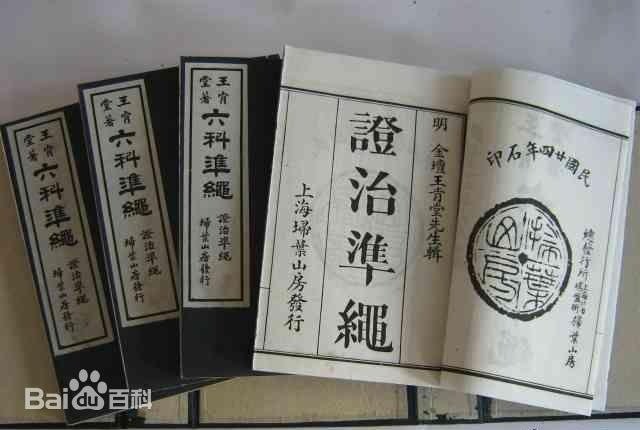 王肯
堂著
六科準繩
證治準繩
埽葉山房發行
王肯
堂著
六科準繩
證治準繩
埽葉山房發行
王肯
堂著
六科準繩
證治準繩
埽葉山房發行
明 金壇王肯堂先生輯
證治準繩
上海埽葉山房發行
民國廿四年石印
埽葉山房
總發行所 上海 棋盤街 埽葉山房
Bai百科